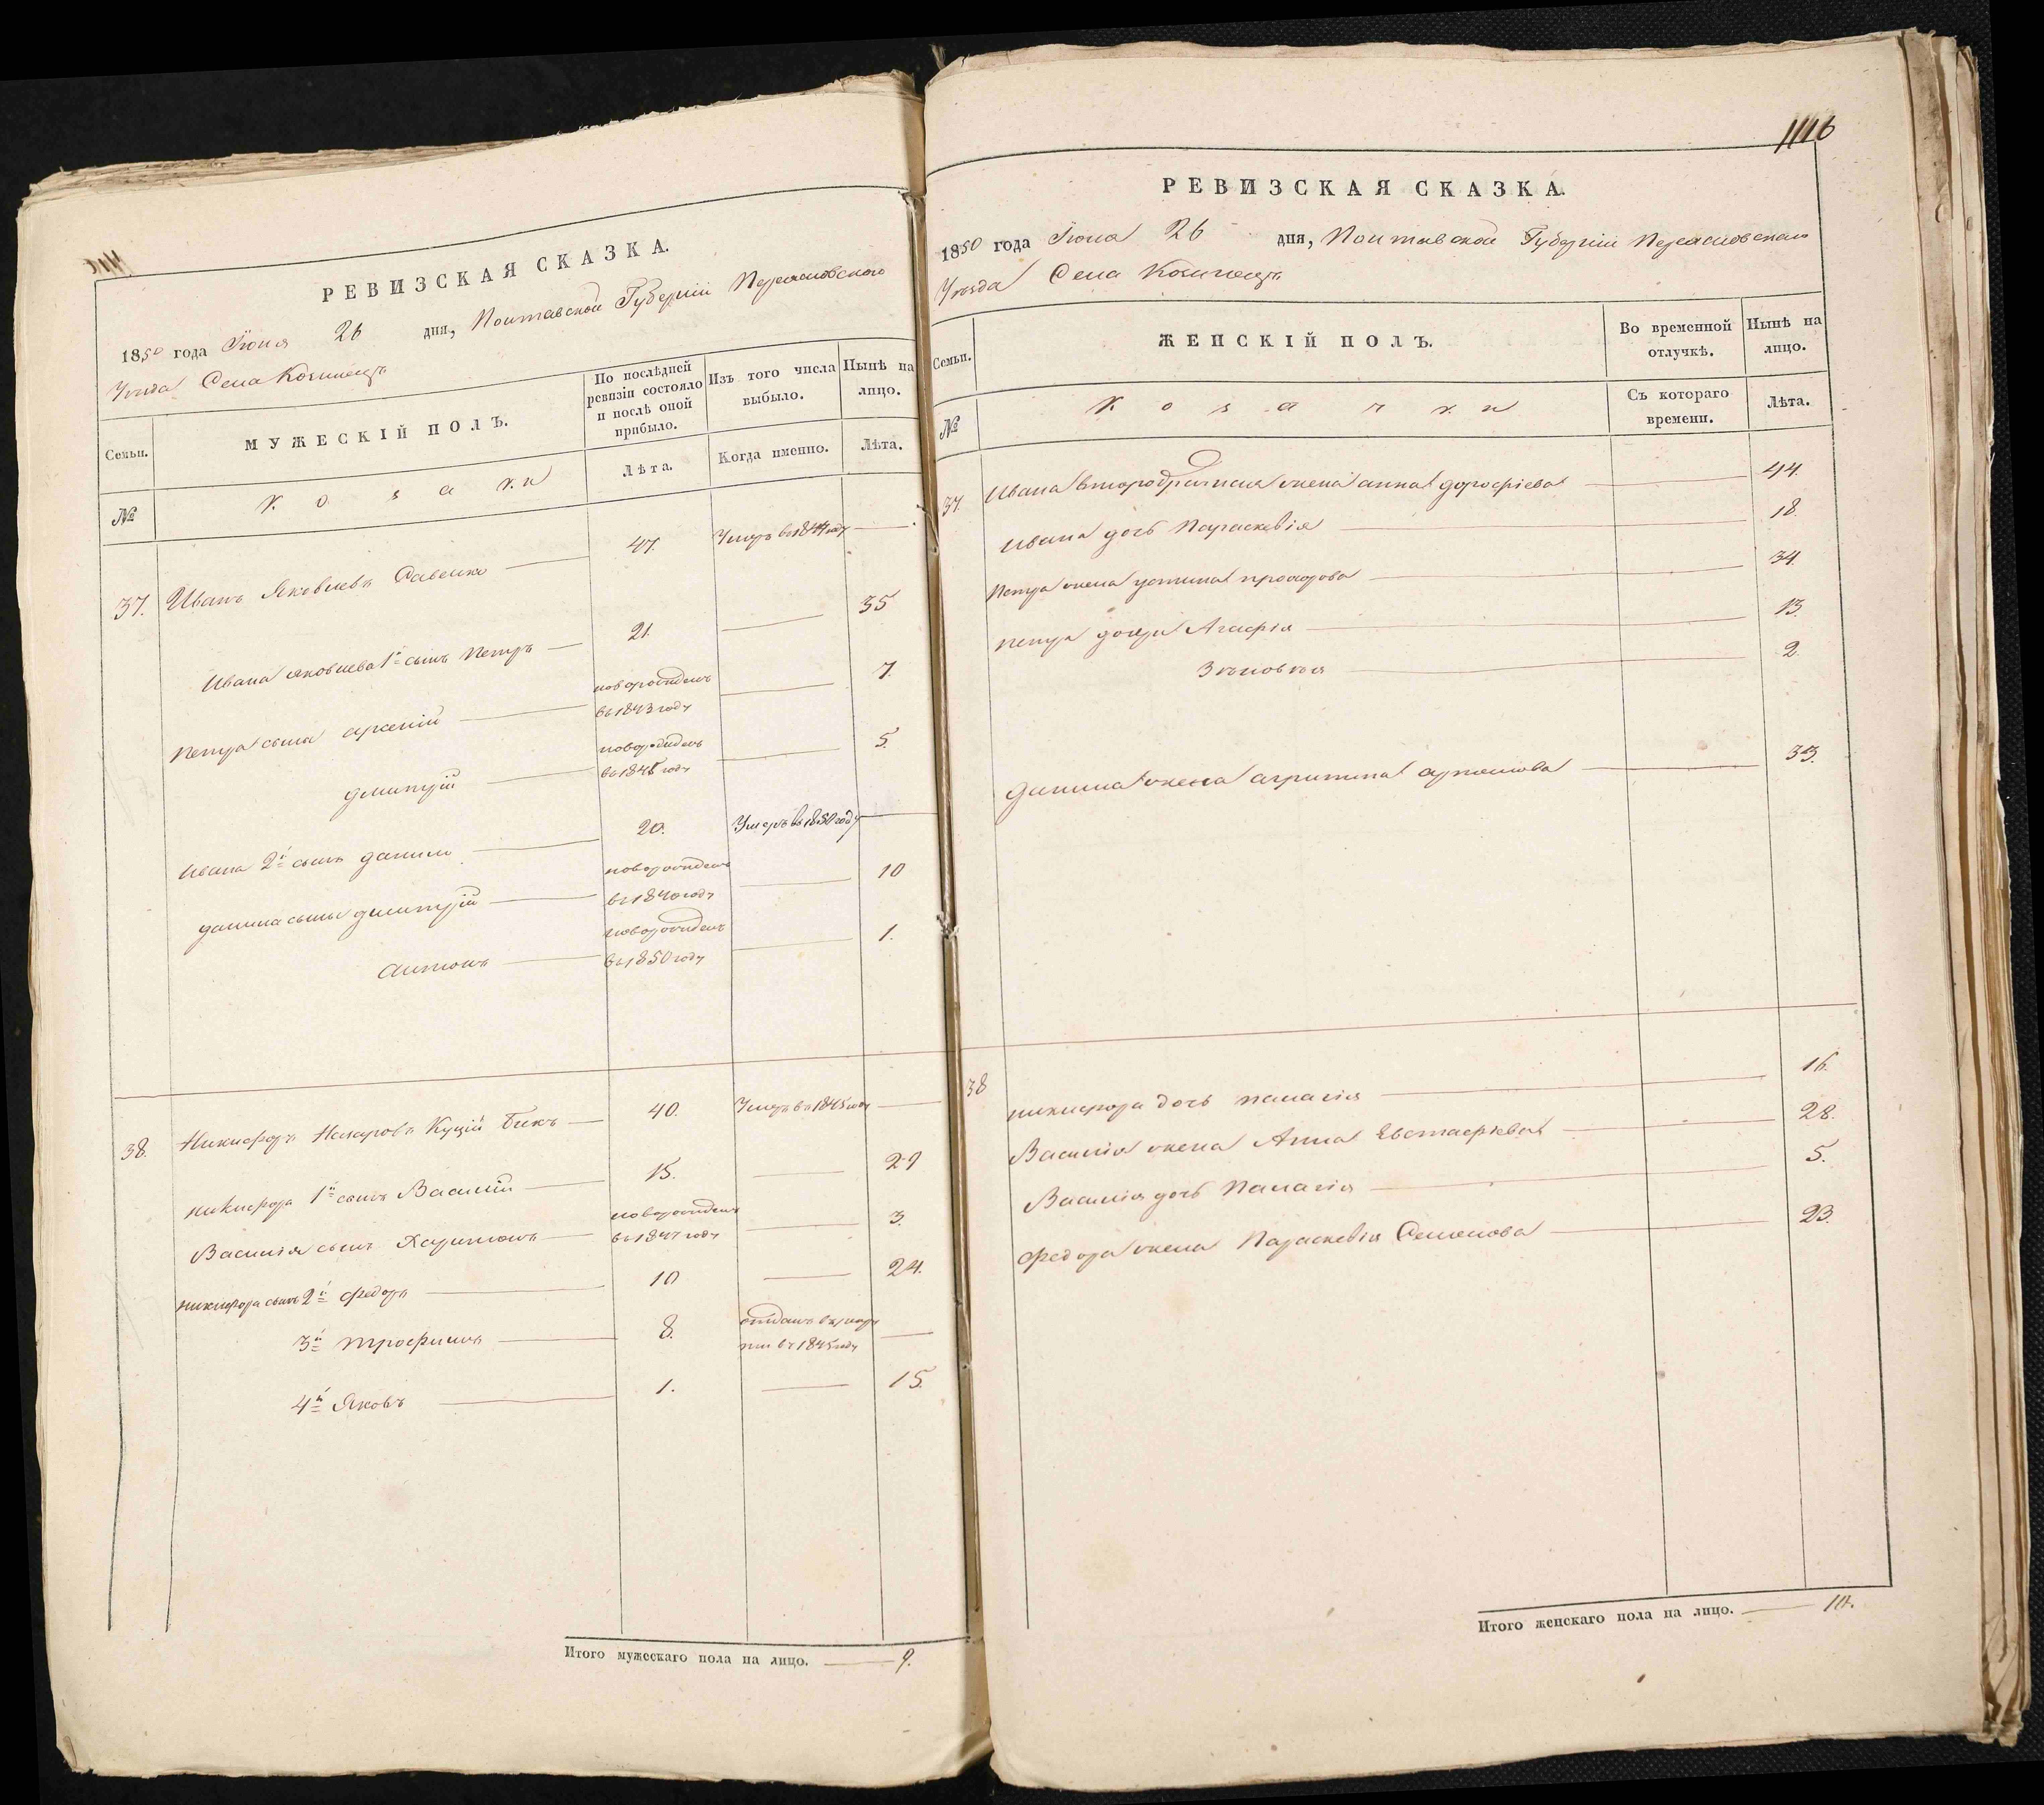 РЕВИЗСКАЯ СКАЗКА.
1850 года Іюня 26 дня, Полтавской Губерніи Переясловского
Уѣзда Села
Семьи.
МУЖЕСКІЙ ПОЛЪ.
По послѣдней ревизіи состояло и послѣ оной прибыло.
Изъ того числа выбыло.
Нынѣ на лицо.
№
козаки
Лѣта.
Когда именно.
Лѣта.
37. Иванъ Яковлевъ Савенко 47. Умеръ въ 1844 году
Ивана Яковлева 1й сынъ Петръ 21. 35
Петра сына Арсеній новорожденъ въ 1843 году 7.
Дмитрій новорожденъ въ 1845 году 5.
Ивана 2й сынъ Данило 20. Умеръ въ 1850 году
Данила сыны Дмитрій новорожденъ въ 1840 году 10
Антонъ новорожденъ въ 1850 году 1.
38. Никифоръ Назаровъ Куцій Бикъ 40. Умеръ въ 1845 году
Никифора 1й сынъ Василій 15. 29
Василія сынъ Харитонъ новорожденъ въ 1847 году 3.
Никифора сынъ 2й Федоръ 10 24.
3й Трофимъ 8. отданъ въ рекруты въ 1845 году
4й Яковъ 1. 15.
Итого мужескаго пола на лицо. 9.
1116
РЕВИЗСКАЯ СКАЗКА.
1850 года Іюня 26 дня, Полтавской Губерніи Переясловского
Уѣзда Села
Семьи.
ЖЕНСКІЙ ПОЛЪ.
Во временной отлучкѣ.
Нынѣ на лицо.
№
козачки
Съ котораго времени.
Лѣта.
37. Ивана второбрачная жена Анна Дорофіева 44.
Ивана дочь Параскевія 18.
Петра жена Устина Прохорова 34.
Петра дочери Агафія 13.
Зѣновѣя 2.
Данила жена Агрипина Артемова 33.
38 Никифора дочь Палагія 16.
Василія жена Анна Евстафіева 28.
Василія дочь Палагія 5.
Федора жена Параскевія Семенова 23.
Итого женскаго пола на лицо. 10.